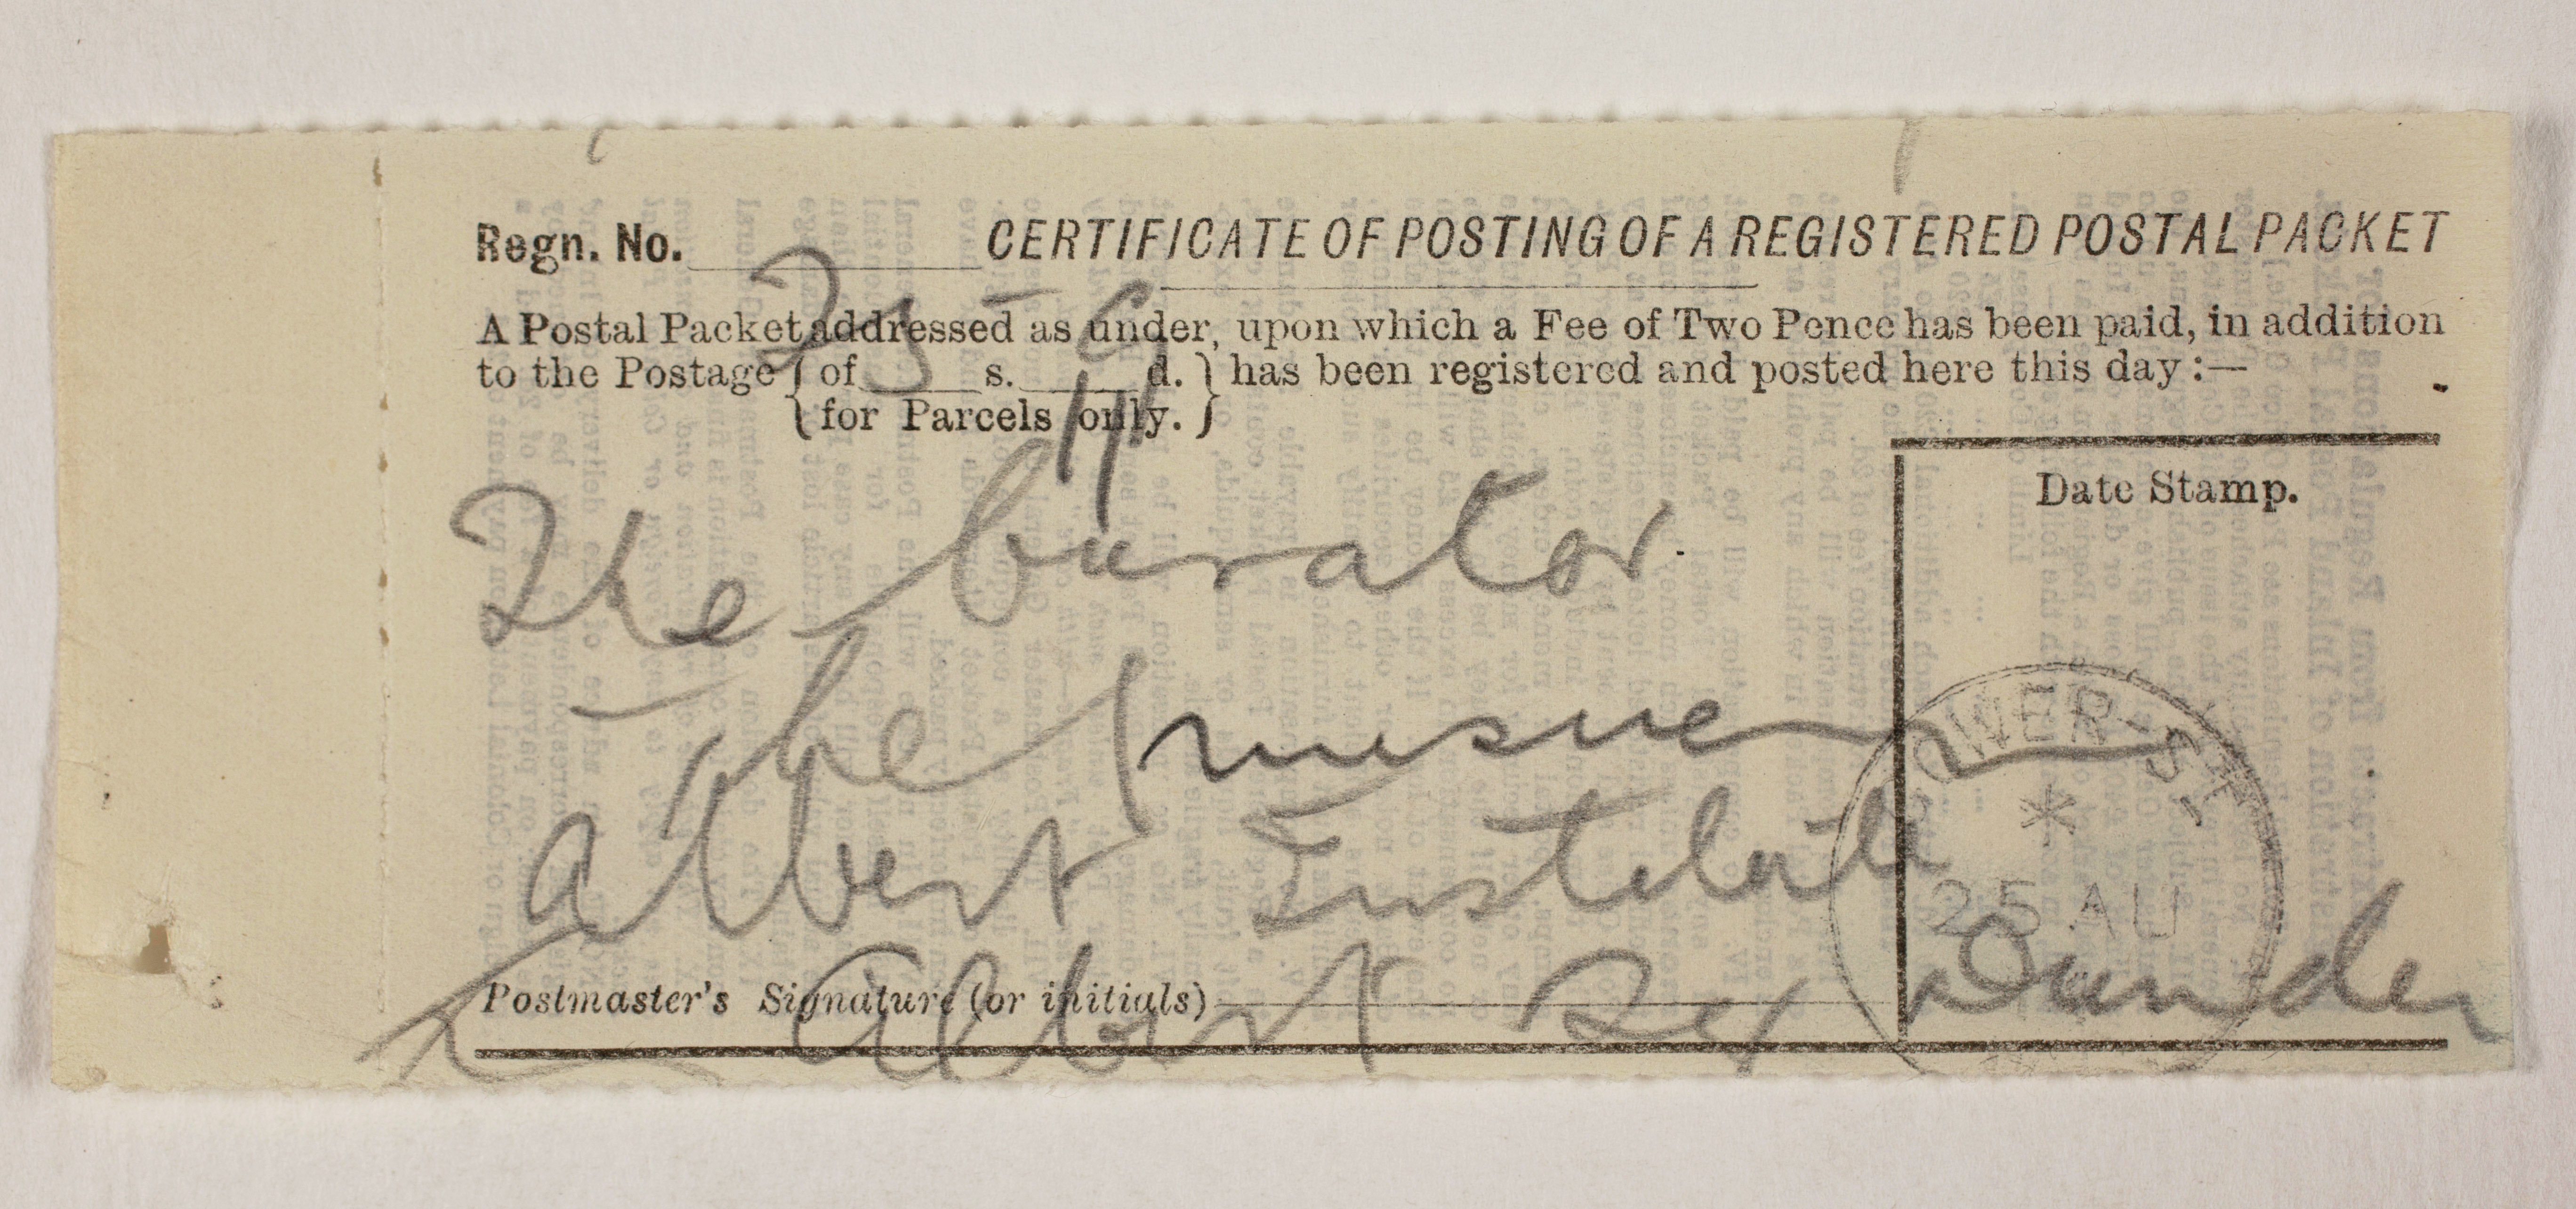 Regn. No. CERTIFICATE OF POSTING OF A REGISTERED POSTAL PACKET
A Postal Packet addressed as under, upon which a Fee of Two Pence has been paid, in addition
to the Postage { of s. d. } has been registered and posted here this day :—
{ for Parcels only. }
Date Stamp.
The Curator
The Museum
Albert Institute
Dundee
Albert Sq
Postmaster's Signature (or initials)
OWER-ST
25 AU